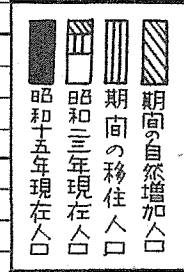 期間の自然増加人口
期間の移住人口
昭和二三年現在人口
昭和十五年現在人口